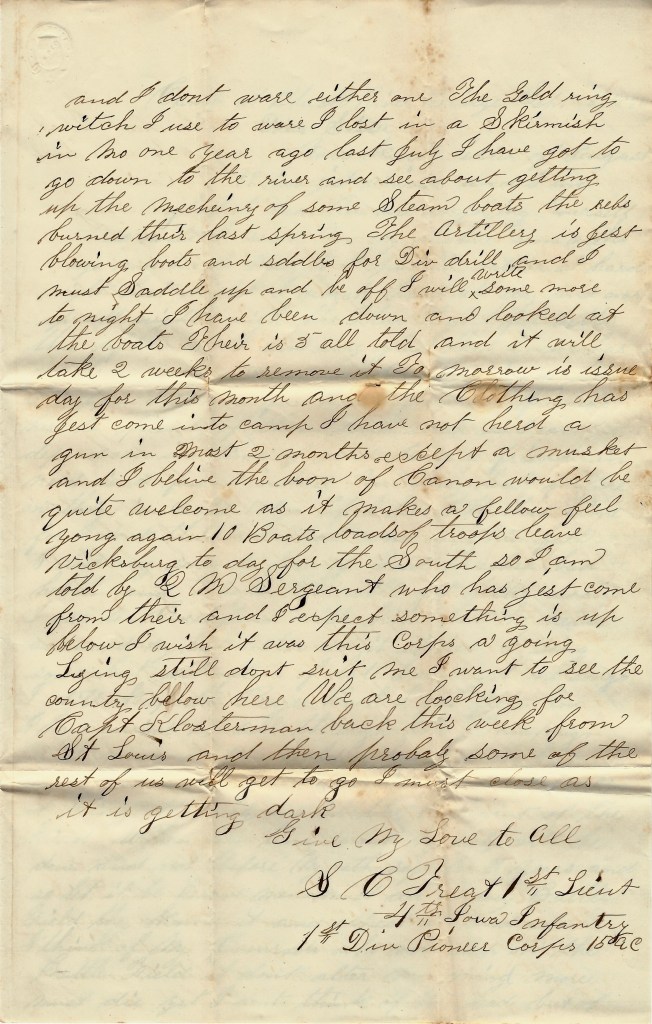 and I dont ware either one The Gold ring
witch I use to ware I lost in a Skirmish
in Mo one year ago last July I have got to
go down to the river and see about getting
up the mecheinry of some Steam boats the rebs
burned their last spring The Artillery is jest
blowing boots and sddles for Div drill and I
must Saddle up and be off I will write some more
to night I have been down and looked at
the boats Their is 5 all told and it will
take 2 weeks to remove it To morrow is issue
day for this month and the Clothing has
jest come into camp I have not herd a
gun in most 2 months except a musket
and I belive the boon of Canon would be
quite welcome as it makes a fellow feel
yong again 10 Boats loads of troops leave
Vicksburg to day for the South so I am
told by Q M Sergeant who has jest come
from their and I expect something is up
below I wish it was this Corps a going
Lying still dont suit me I want to see the
country below here We are loocking for
Capt Klosterman back this week from
St Louis and then probaly some of the
rest of us will get to go I must close as
it is getting dark
Give My Love to All
S C Treat 1st Lieut
4th Iowa Infantry
1st Div Pioneer Corps 15 AC